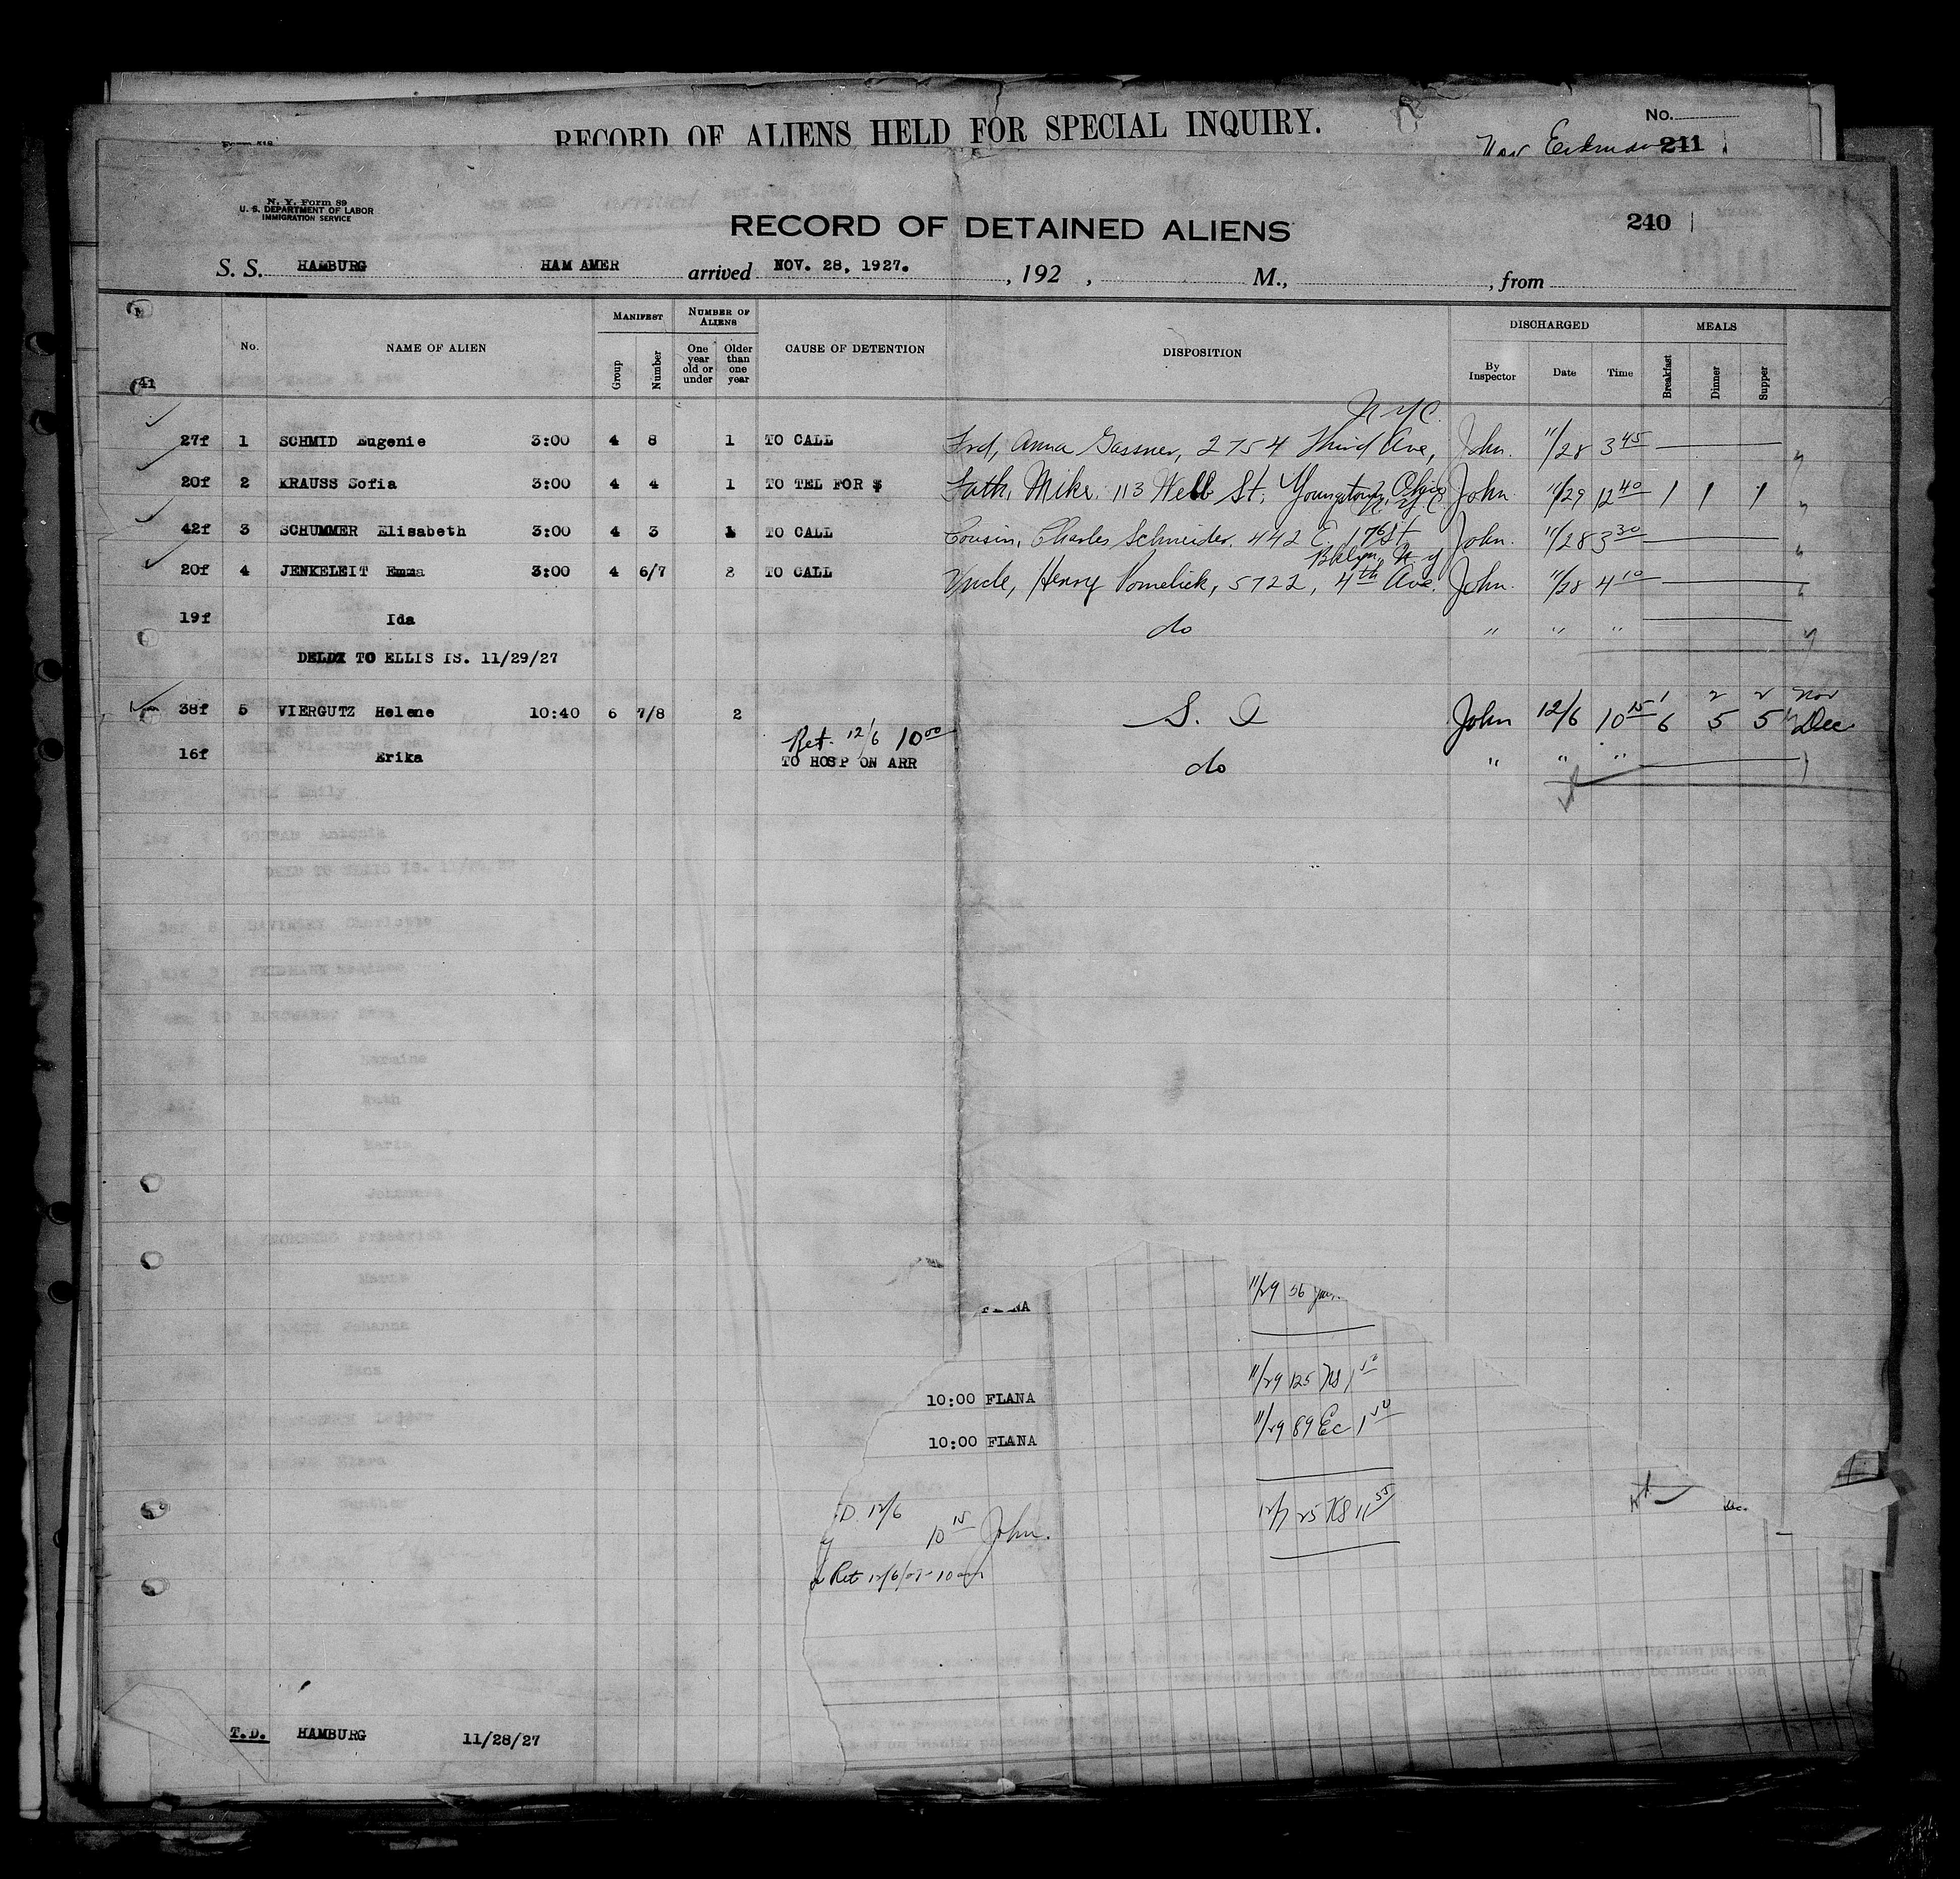 RECORD OF ALIENS HELD FOR SPECIAL INQUIRY.
No.
241
N. Y. Form 89
U. S. DEPARTMENT OF LABOR
IMMIGRATION SERVICE
RECORD OF DETAINED ALIENS
240
S. S. HAMBURG HAM AMER arrived NOV. 28, 1927. , 192 , M., , from
No. NAME OF ALIEN MANIFEST Group Number NUMBER OF ALIENS One year old or under Older than one year CAUSE OF DETENTION DISPOSITION DISCHARGED By Inspector Date Time MEALS Breakfast Dinner Supper
41
N.Y.C.
27f 1 SCHMID Eugenie 3:00 4 8 1 TO CALL Frd, Anna Gassner, 2754 Third Ave, John. 11/28 3 45
20f 2 KRAUSS Sofia 3:00 4 4 1 TO TEL FOR $ Fath, Mike, 113 Webb St, Youngstown, Ohio John. 11/29 12 40 1 1 1
N.Y.C.
42f 3 SCHUMMER Elisabeth 3:00 4 3 1 TO CALL Cousin, Charles Schneider. 442 E. 176 St John. 11/28 3 30
Bklyn, N.Y
20f 4 JENKELEIT Emma 3:00 4 6/7 2 TO CALL Uncle, Henry 5722, 4th Ave. John. 11/28 4 10
19f Ida do " " "
DELDX TO ELLIS IS. 11/29/27
2 2 Nov
38f 5 VIERGUTZ Helene 10:40 6 7/8 2 S. I John 12/6 10 15 6 5 5 Dec
Ret. 12/6 10 00
16f Erika TO HOSP ON ARR do " " "
11/29 56
11/29 125 1 50
10:00 FLANA
11/29 89 Ec 1 50
10:00 FLANA
D. 12/6
12/7 25 11 55
10 15 John.
Ret 12/6/27 - 10 am
Dec.
T.D. HAMBURG 11/28/27